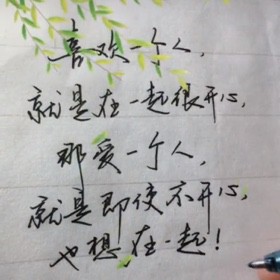 喜欢一个人,
就是在一起很开心,
那爱一个人,
就是即使不开心,
也想在一起!